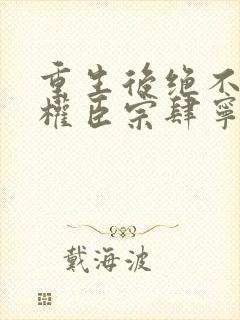 重生後绝不
權臣宗肆寧
戴海波